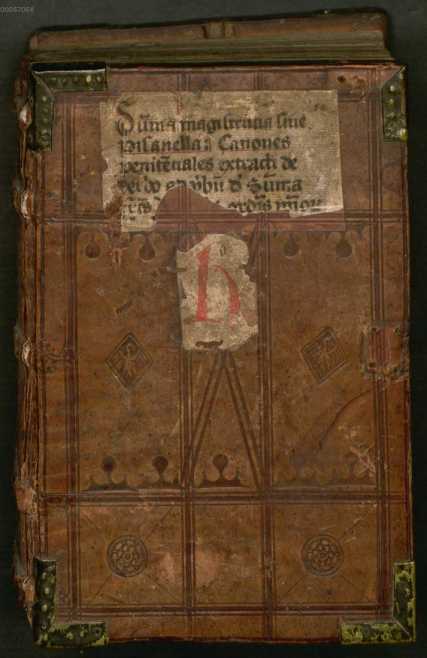 00057064
Su̅ma magistrucia siue
Pisanella: Canones
penite̅tiales extracti de
de
Su̅ma
ordi̅s mi̅oꝝ
h